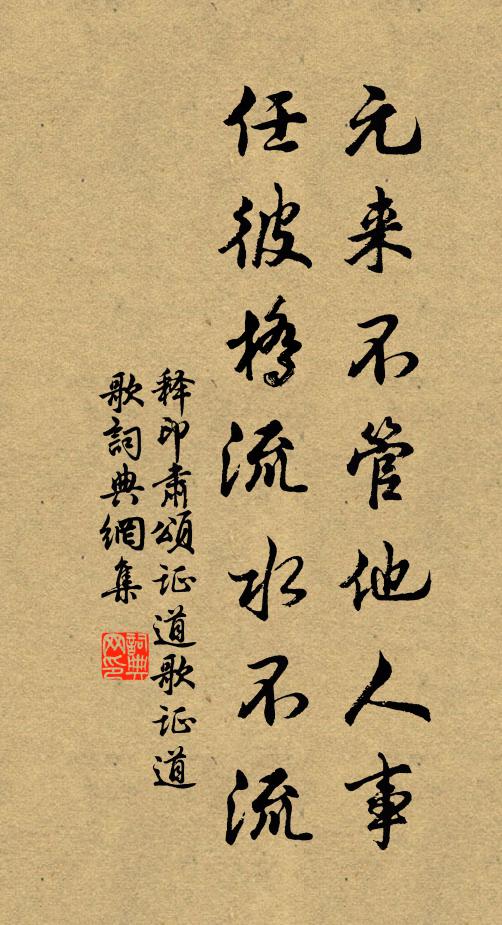 元来不管他人事
任彼橋流水不流
释印肃頌证道歌证道
歌詞典網集
詞典网印